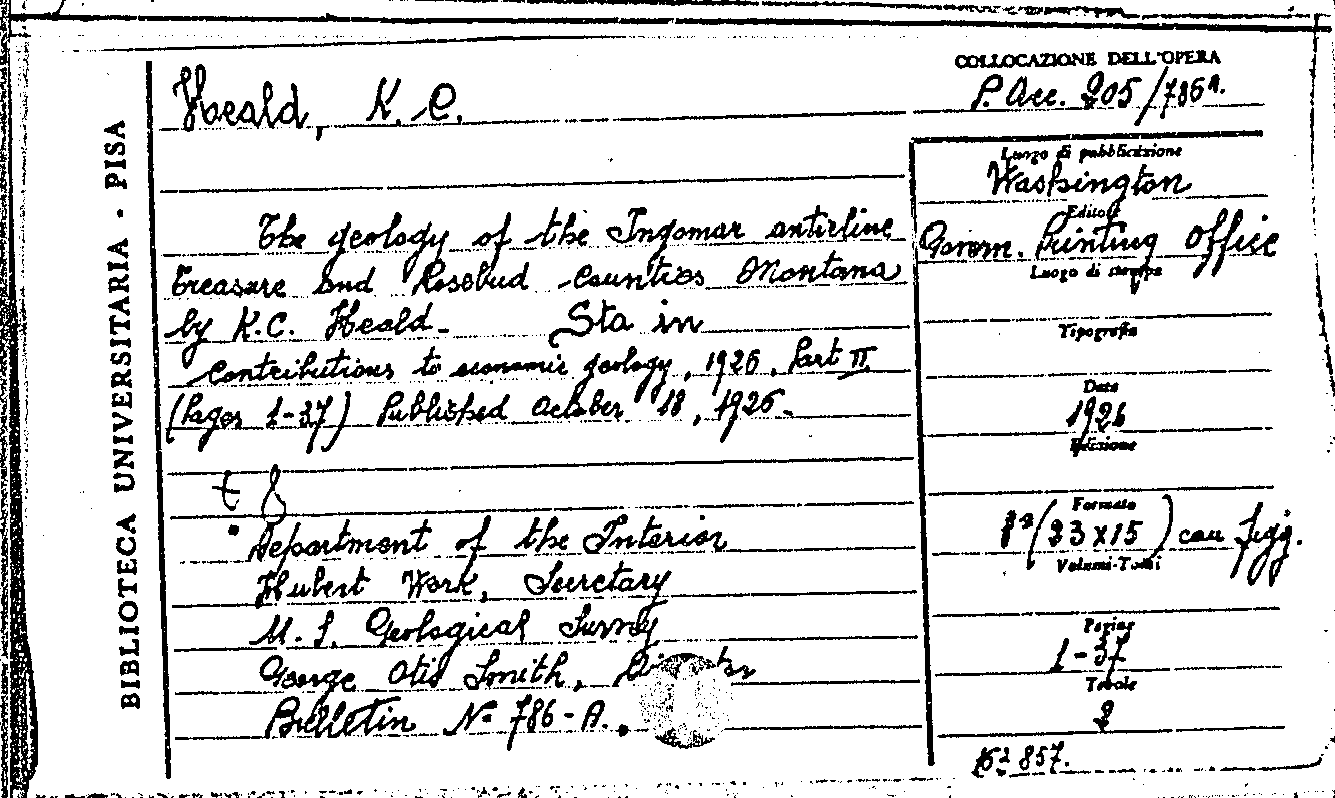 BIBLIOTECA UNIVERSITARIA - PISA
Heald, K. C.
COLLOCAZIONE DELL'OPERA
P. Acc. 205/786A.
The geology of the Ingomar anticline
Treasure and Rosebud counties Montana
by K.C. Heald. Sta in
contributions to economic geology, 1926, Part II
(Pages 1-37) Published October 18, 1926.
Department of the Interior
Hubert Work, Secretary
U. S. Geological Survey
George Otis Smith, Director
Bulletin No 786-A.
Luogo di pubblicazione
Washington
Editore
Govern. Printing Office
Luogo di stampa
Tipografia
Data
1926
Edizione
Formato
(23x15) con figg.
Volumi-Tomi
Pagine
1-37
Tavole
2
857.